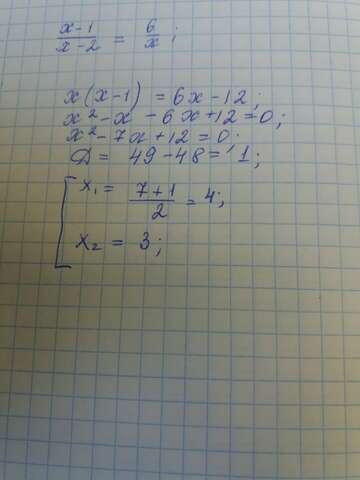 x-1/x-2 = 6/x;
x(x-1) = 6x-12;
x²-x-6x+12=0;
x²-7x+12=0;
D = 49-48=1;
x₁ = 7+1/2 = 4;
x₂ = 3;